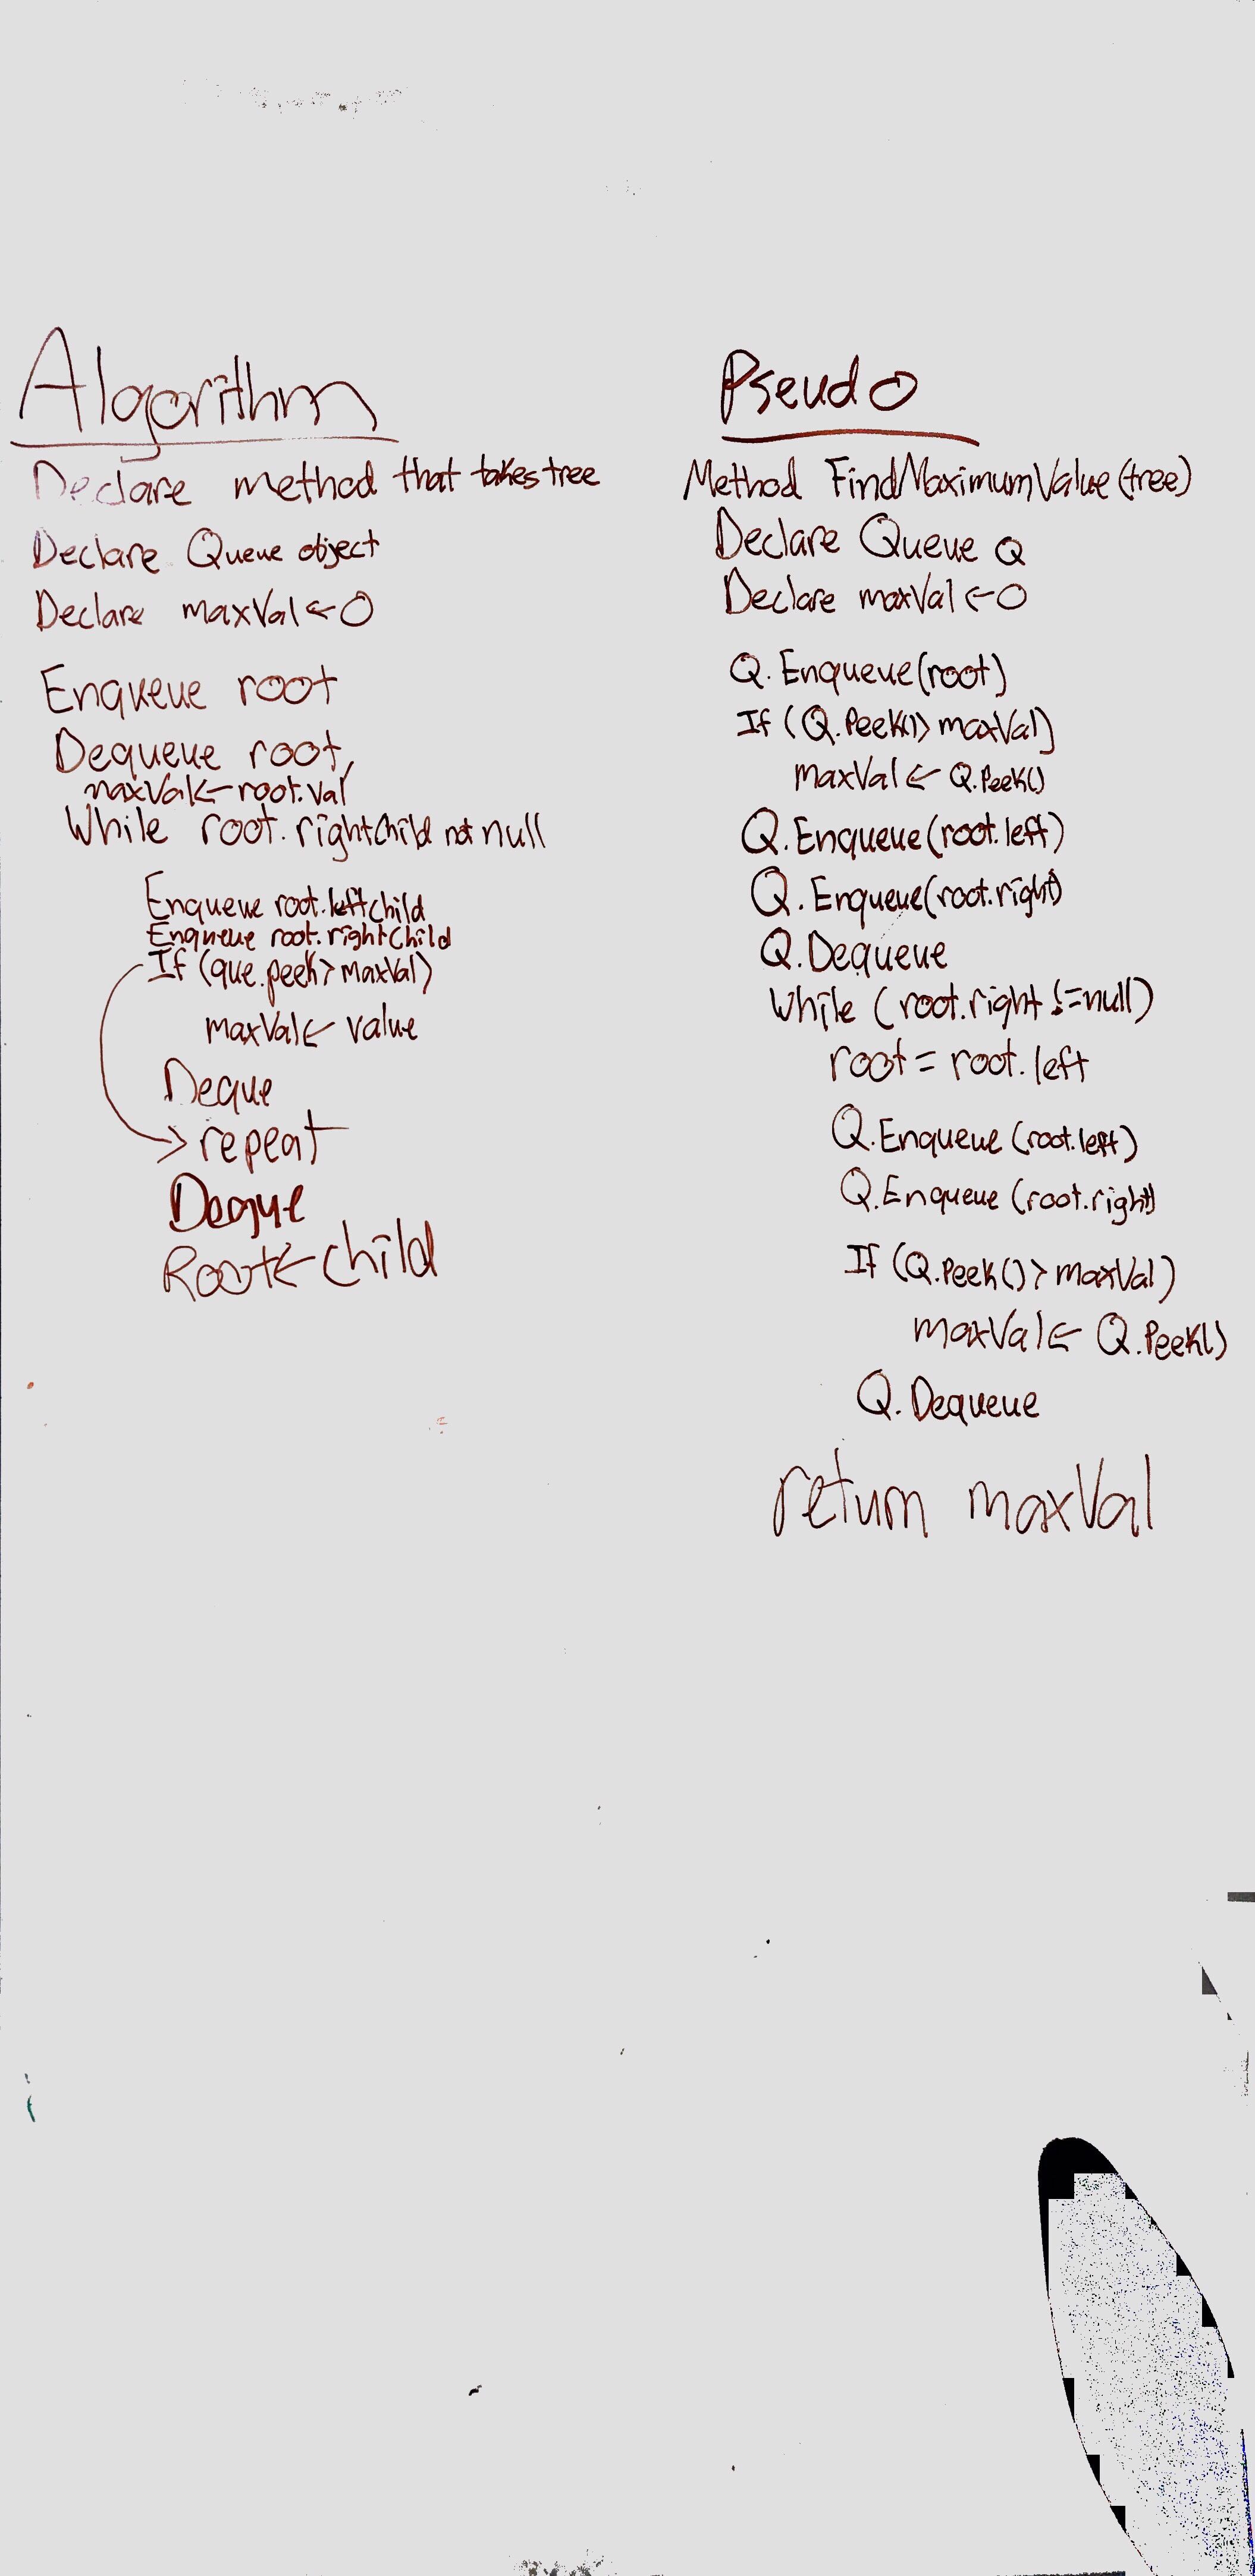 Algorithm
Declare method that takes tree
Declare Queue object
Declare maxVal ← 0
Enqueue root
Dequeue root,
maxVal ← root.val
While root.rightChild not null
Enqueue root.leftchild
Enqueue root.rightChild
If (que.peek > maxVal)
maxVal ← value
Deque
→ repeat
Deque
Root ← child
Pseudo
Method FindMaximumValue(tree)
Declare Queue Q
Declare maxVal ← 0
Q.Enqueue(root)
If (Q.Peek() > maxVal)
maxVal ← Q.Peek()
Q.Enqueue(root.left)
Q.Enqueue(root.right)
Q.Dequeue
while (root.right != null)
root = root.left
Q.Enqueue(root.left)
Q.Enqueue(root.right)
If (Q.Peek() > maxVal)
maxVal ← Q.Peek()
Q.Dequeue
return maxVal